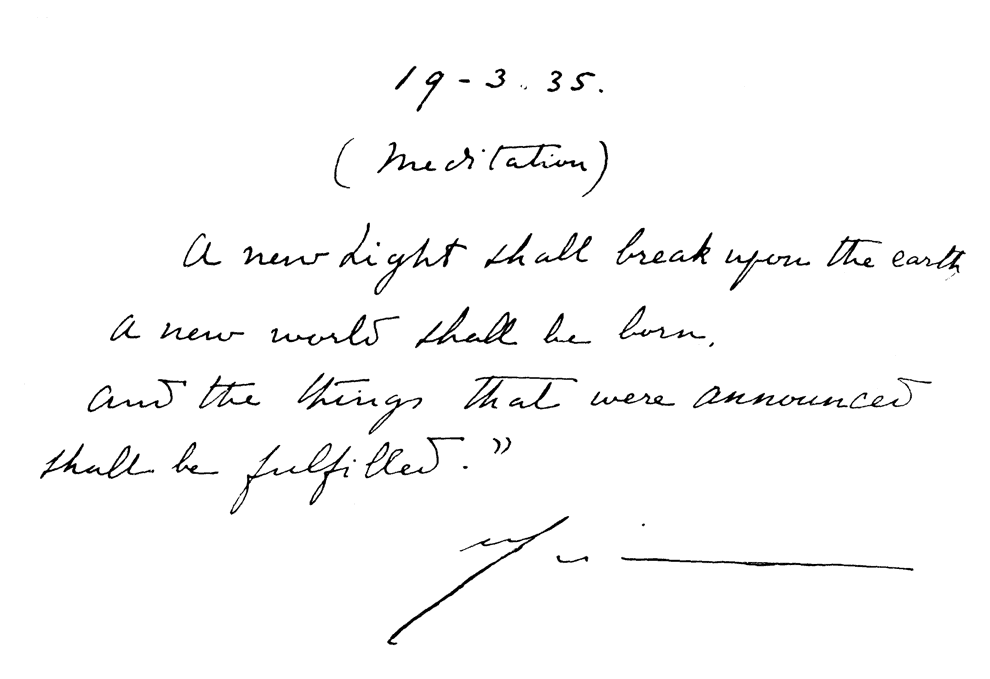 19-3.35.
(Meditation)
A new Light shall break upon the earth
a new world shall be born,
and the things that were announced
shall be fulfilled.”